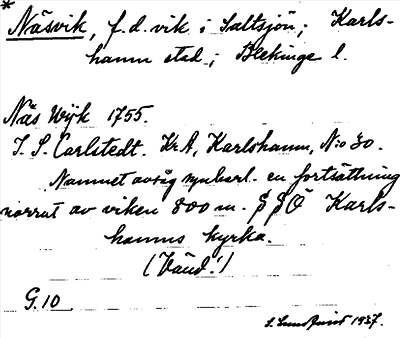 * Näsvik, f.d. vik i Saltsjön; Karls-
hamn stad; Blekinge l.
Näs Wijk 1755.
I. S. Carlstedt. KrA, Karlshamn, N:o 30.
Namnet avsåg synbarl. en fortsättning
norrut av viken 800 m. SSÖ Karls-
hamns kyrka.
(Vänd!)
G.10
S. Sundquist 1937.